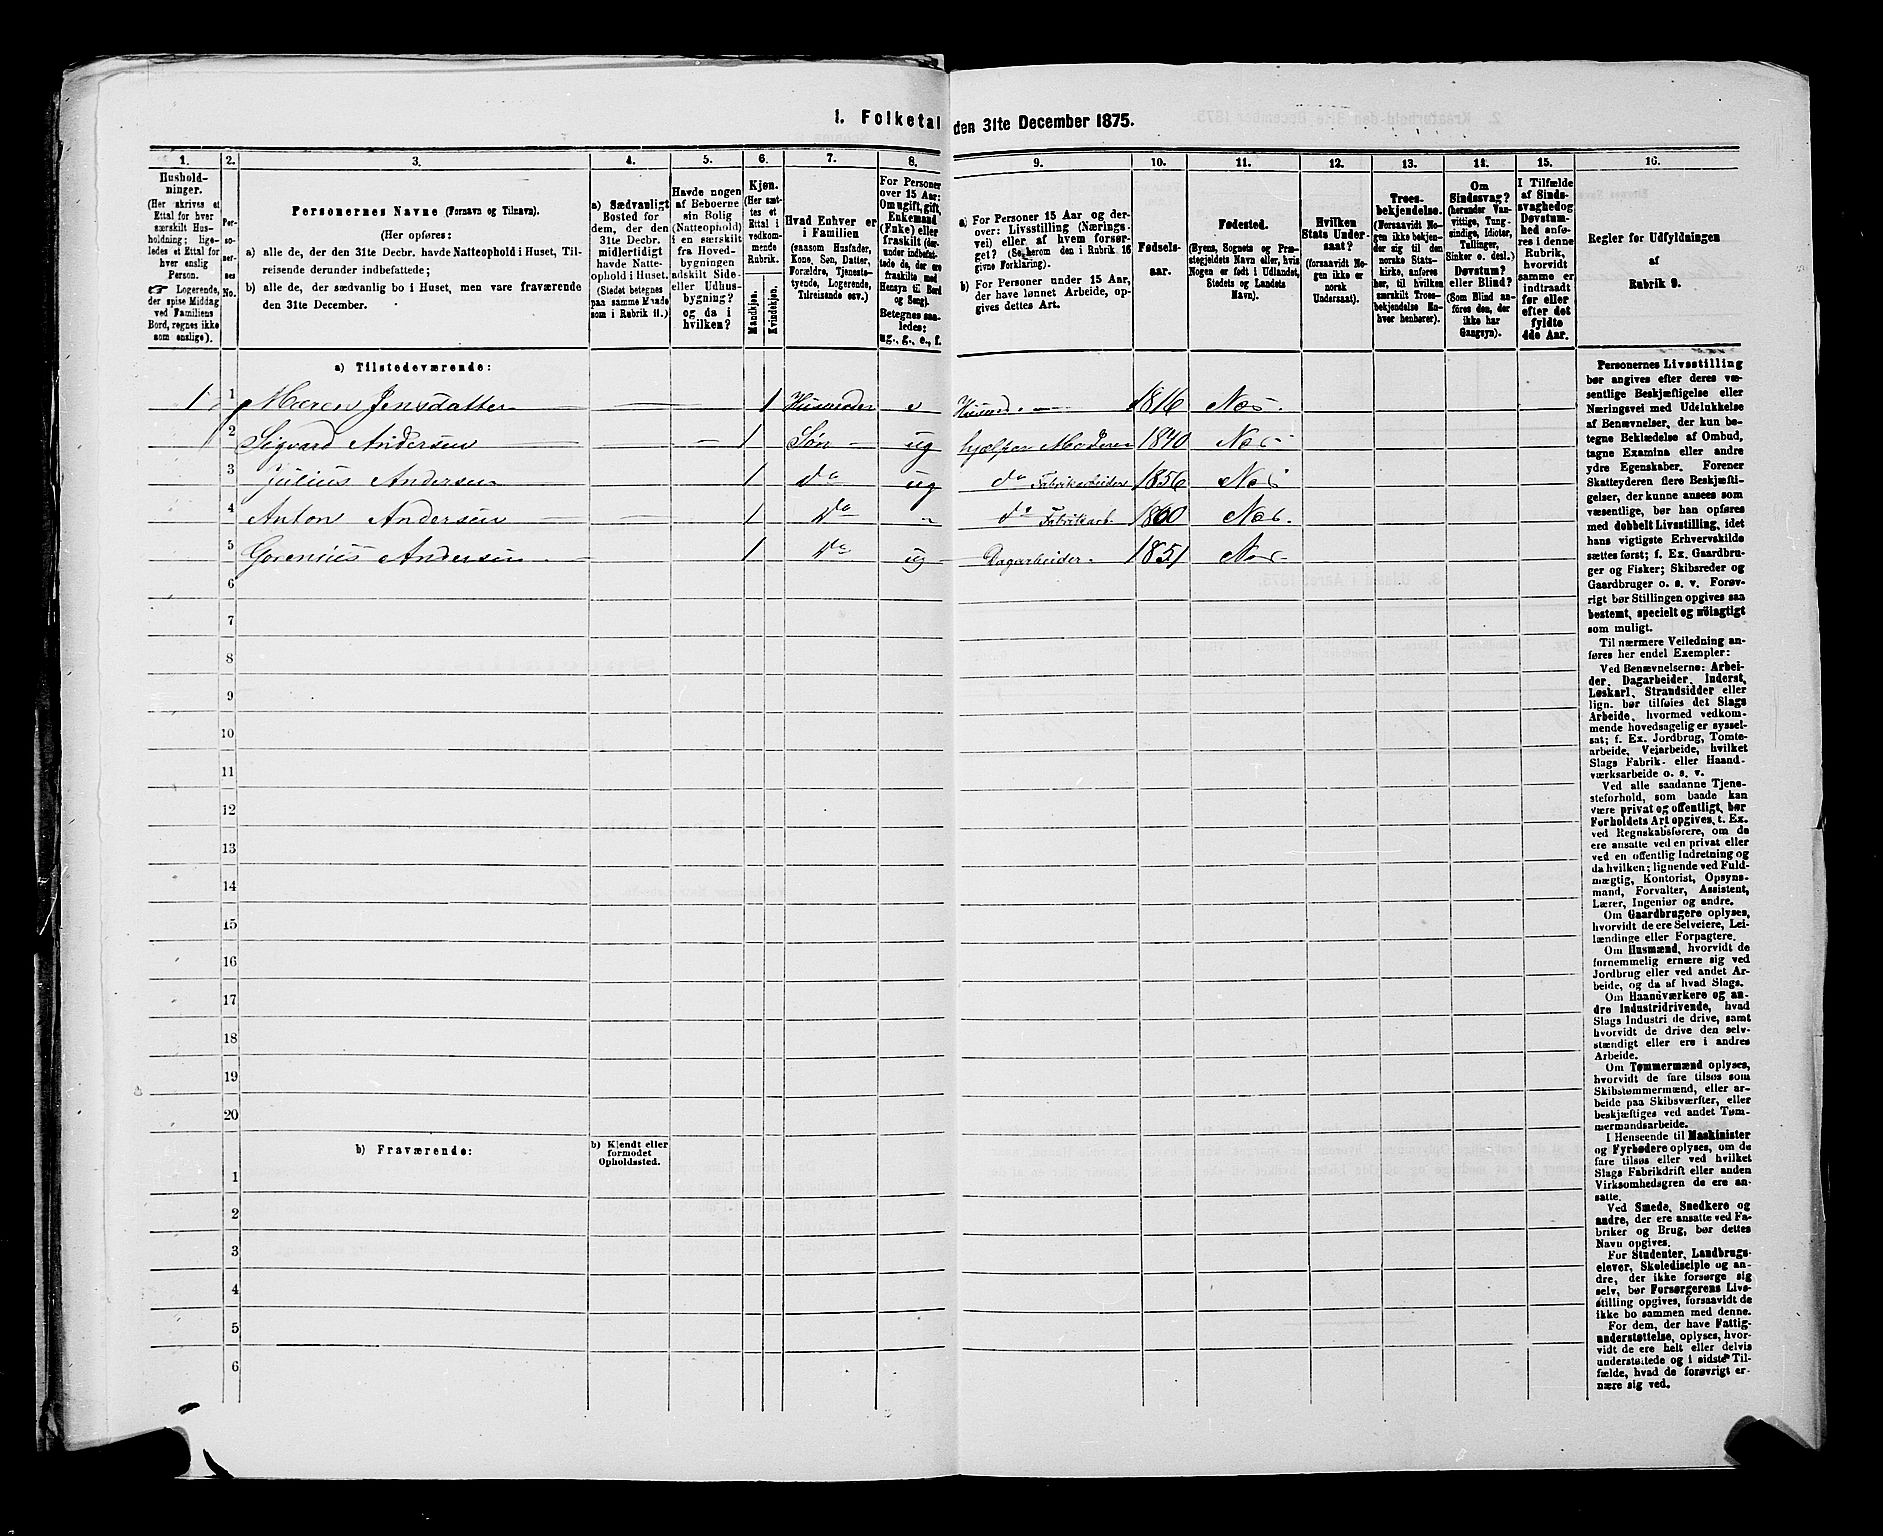 1. Folketal den 31te December 1875.
1.
2.
3.
4.
5.
6.
7.
8.
9.
10.
11.
12.
13.
14.
15.
16.
Hushold-
ninger.
(Her skrives et
Ettal for hver
særskilt Hus-
holdning; lige-
ledes et Ettal for
hver enslig
Person.
☞ Logerende,
der spise Middag
ved Familiens
Bord, regnes ikke
som enslige).
Per-
so-
ner-
nes
No.
Personernes Navne (Fornavn og Tilnavn).
(Her opføres:
a) alle de, der den 31te Decbr. havde Natteophold i Huset, Til-
reisende derunder indbefattede;
b) alle de, der sædvanlig bo i Huset, men vare fraværende
den 31te December.
a) Sædvanligt
Bosted for
dem, der den
31te Decbr.
midlertidigt
havde Natte-
ophold i Huset.
(Stedet betegnes
paa samme Maade
som i Rubrik 11.)
Havde nogen
af Beboerne
sin Bolig
(Natteophold)
i en særskilt
fra Hoved-
bygningen
adskilt Side-
eller Udhus-
bygning?
og da i
hvilken?
Kjøn.
(Her sæt-
tes et
Ettal i
vedkom-
mende
Rubrik.
Mandkjøn.
Kvindekjøn.
Hvad Enhver er
i Familien
(saasom Husfader,
Kone, Søn, Datter,
Forældre, Tjeneste-
tyende, Logerende,
Tilreisende osv.)
For Personer
over 15 Aar:
Om ugift, gift,
Enkemand
(Enke) eller
fraskilt (der-
under indbefat-
tede de, der ere
fraskilte med
Hensyn til Bord
og Seng).
Betegnes saa-
ledes:
ug., g., e., f.
a) For Personer 15 Aar og der-
over: Livsstilling (Nærings-
vei) eller af hvem forsør-
get? (Se herom den i Rubrik 16
givne Forklaring).
b) For Personer under 15 Aar,
der have lønnet Arbeide, op-
gives dettes Art.
Fødsels-
aar.
Fødested.
(Byens, Sognets og Præ-
stegjeldets Navn eller, hvis
Nogen er født i Udlandet,
Stedets og Landets
Navn).
Hvilken
Stats Under-
saat?
(forsaavidt No-
gen ikke er
norsk
Undersaat).
Troes-
bekjendelse.
(Forsaavidt No-
gen ikke bekjen-
der sig til den
norske Stats-
kirke, anføres
her, til hvilken
særskilt Troes-
bekjendelse En-
hver henhører).
Om
Sindssvag?
(herunder Van-
vittige, Tung-
sindige, Idioter,
Tullinger,
Sinker o. desl.)
Døvstum?
eller Blind?
(Som Blind an-
føres den, der
ikke har
Gangsyn).
I Tilfælde
af Sinds-
svaghed og
Døvstum-
hed anfø-
res i denne
Rubrik,
hvorvidt
samme er
indtraadt
før eller
efter det
fyldte
4de Aar.
Regler for Udfyldningen
af
Rubrik 9.
a) Tilstedeværende:
1 1 Maren Jensdatter 1 Husmoder e 1816 Næs
2 Sigvard Andersen 1 Søn ug hjælper Moderen 1840 Næs
3 Julius Andersen 1 do ug do Fabrikarbeider 1856 Næs
4 Anton Andersen 1 do " do Fabrikarb. 1860 Næs.
5 Gorenius Andersen 1 do ug Dagarbeider 1851 Næs
6
7
8
9
10
11
12
13
14
15
16
17
18
19
20
b) Fraværende:
b) Kjendt eller
formodet
Opholdssted.
1
2
3
4
5
6
Personernes Livsstilling
bør angives efter deres væ-
sentlige Beskjæftigelse eller
Næringsvei med Udelukkelse
af Benævnelser, der kun be-
tegne Beklædelse af Ombud,
tagne Examina eller andre
ydre Egenskaber. Forener
Skatteyderen flere Beskjæfti-
gelser, der kunne ansees som
væsentlige, bør han opføres
med dobbelt Livsstilling, idet
hans vigtigste Erhvervskilde
sættes først; f. Ex. Gaardbru-
ger og Fisker; Skibsreder og
Gaardbruger o. s. v. Forøv-
rigt bør Stillingen opgives saa
bestemt, specielt og nøiagtigt
som muligt.
Til nærmere Veiledning an-
føres her endel Exempler:
Ved Benævnelserne: Arbei-
der, Dagarbeider, Inderst,
Løskarl, Strandsidder eller
lign. bør tilføies det Slags
Arbeide, hvormed vedkom-
mende hovedsagelig er syssel-
sat; f. Ex. Jordbrug, Tomte-
arbeide, Veiarbeide, hvilket
Slags Fabrik- eller Haand-
værksarbeide o. s. v.
Ved alle saadanne Tjene-
steforhold, som baade kan
være privat og offentligt, bør
Forholdets Art opgives, t. Ex.
ved Regnskabsførere, om de
ere ansatte ved en privat eller
ved en offentlig Indretning og
da hvilken; lignende ved Fuld-
mægtig, Kontorist, Opsyns-
mand, Forvalter, Assistent,
Lærer, Ingeniør og andre.
Om Gaardbrugere oplyses,
hvorvidt de ere Selveiere, Lei-
lændinge eller Forpagtere.
Om Husmænd, hvorvidt de
fornemmelig ernære sig ved
Jordbrug eller ved andet Ar-
beide, og da af hvad Slags.
Om Haandværkere og an-
dre Industridrivende, hvad
Slags Industri de drive, samt
hvorvidt de drive den selv-
stændigt eller ere i andres
Arbeide.
Om Tømmermænd oplyses,
hvorvidt de fare tilsøs som
Skibstømmermænd, eller ar-
beide paa Skibsværfter, eller
beskjæftiges ved andet Tøm-
mermandsarbeide.
I Henseende til Maskinister
og Fyrbødere oplyses, om de
fare tilsøs eller ved hvilket
Slags Fabrikdrift eller anden
Virksomhedsgren de ere an-
satte.
Ved Smede, Snedkere og
andre, der ere ansatte ved Fa-
briker og Brug, bør dettes
Navn opgives.
For Studenter, Landbrugs-
elever, Skoledisciple og an-
dre, der ikke forsørge sig
selv, bør Forsørgerens Livs-
stilling opgives, forsaavidt de
ikke bo sammen med denne.
For dem, der have Fattig-
understøttelse, oplyses, hvor-
vidt de ere helt eller delvis
understøttede og i sidste Til-
fælde, hvad de forøvrigt er-
nære sig ved.